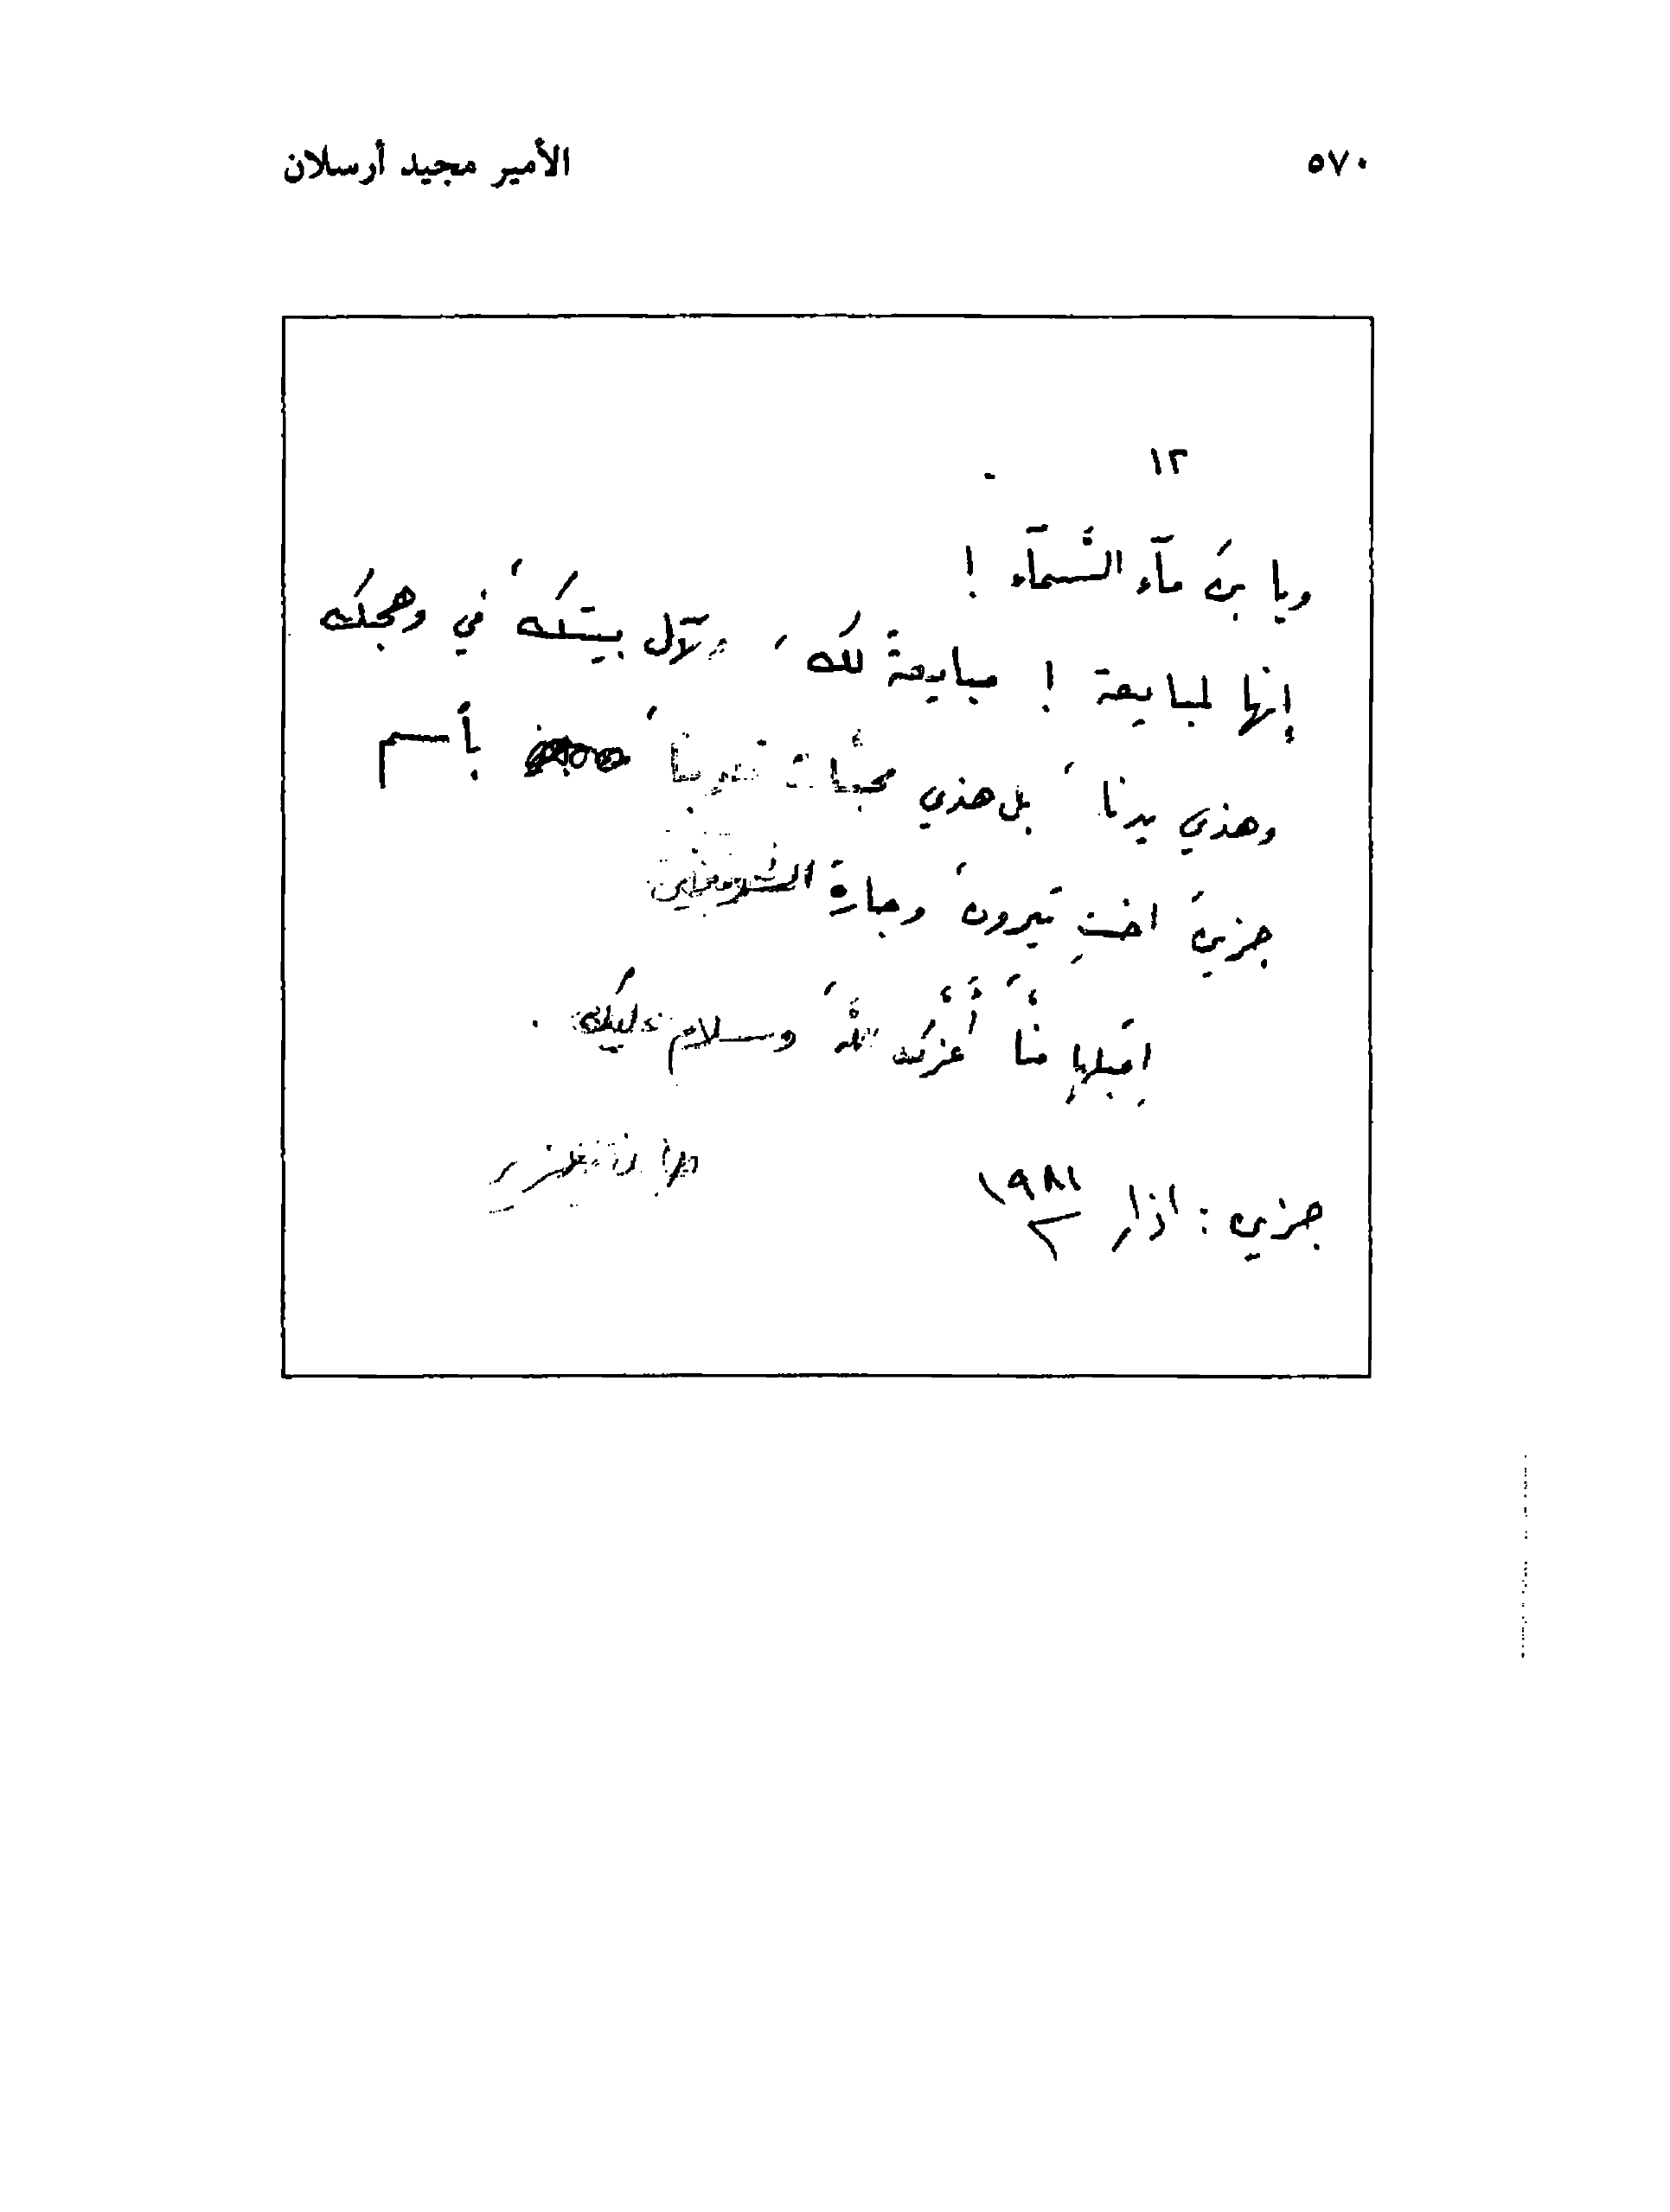 ٥٧٠
الأمير مجيد أرسلان
١٢
ويا بنَ مآء السَّمآء !
إنها لمبايعة ! مبايعةٌ لكَ ، ولآل بيتكَ ، في وهجكَ
وهذي يدنا ، بل هذي محبّات قلوبنا ، بأسم
جزينَ اختِ نيرونَ ، وجارةِ
اِقبلها منّا ، أعزّكَ اللّهُ ، وسلام عليكَ .
جزين : اذار ١٩٨٢